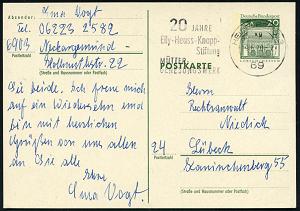 Absender: Irma Vogt
Tel. 06223 2582
6903 Neckargemünd-
Postleitzahl
Hollmuthstr. 22
(Straße und Hausnummer oder Postfach)
Sie beide. Ich freue mich
auf ein Wiedersehn und
bin mit herzlichen
Grüßen von uns allen
an Sie alle
Ihre
Irma Vogt.
20 JAHRE
Elly-Heuss-Knapp-
Stiftung
MÜTTER-
GENESUNGSWERK
69
DEUTSCHE BUNDESPOST
20
POSTKARTE
Herrn
Rechtsanwalt
Niedick
24 Lübeck
Postleitzahl
Kaninchenberg 55
(Straße und Hausnummer oder Postfach)